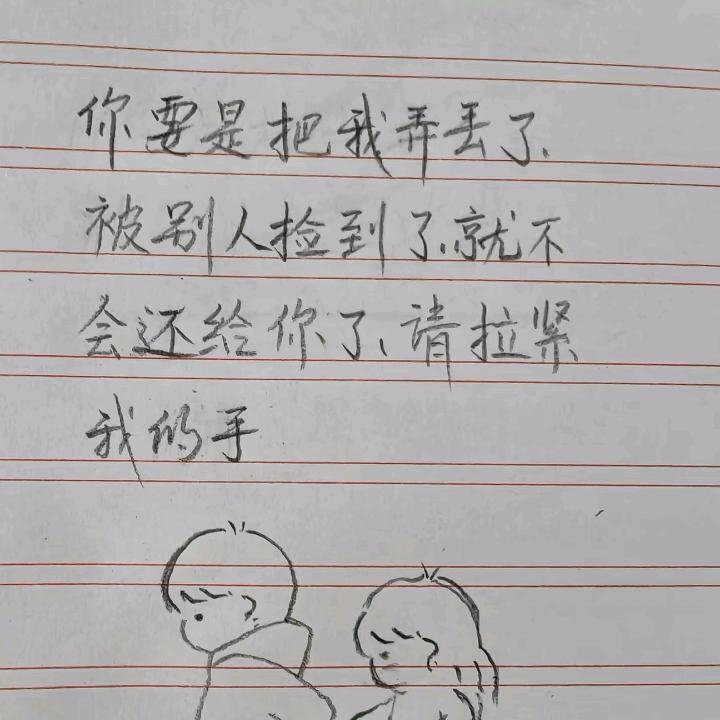 你要是把我弄丢了、
被别人捡到了、就不
会还给你了、请拉紧
我的手